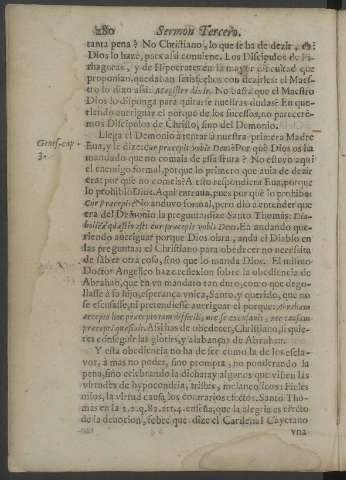 280 Sermon Tercero.
tanta pena? No Christiano, lo que se ha de dezir, es:
Dios lo haze, pues assi conviene. Los Discipulos de Pi-
thagoras, y de Hipocrates en la mayor dificultad que
proponian, quedaban satisfechos con dezirles: el Maes-
tro lo dixo assi: Magister dixit. No basta que el Maestro
Dios lo disponga para quitarse nuestras dudas? En que-
riendo averiguar el porque de los sucessos, no parecere-
mos Discipulos de Christo, sino del Demonio.
Llega el Demonio à tentar à nuestra primera Madre
Genes. cap. Eua, y le dize: Cur præcepit vobis Deus? Por què Dios os ha
3. mandado que no comais de essa fruta? No estuvo aqui
el enemigo formal, porque lo primero que auia de dezir
era: por què no comeis? A esto respondiera Eua, porque
lo prohibiò Dios. Aqui entrata, pues por què lo prohibe:
Cur præcepit? No anduvo formal, pero diò à entender que
era del Demonio la pregunta, dize Santo Thomàs: Dia-
bolica quæstio est: cur præcepit vobis Deus. En andando que-
riendo averiguar porque Dios obra, anda el Diablo en
las preguntas; el Christiano para obedecer no necessita
de saber otra cosa, sino que lo manda Dios. El mismo
Doctor Angelico haze reflexion sobre la obediencia de
Abrahan, que en vn mandato tan duro, como que dego-
llasse à su hijo, esperança vnica, Santo, y querido, que no
se escusasse, ni pretendiesse averiguar el porque: Abraham
accepto hoc præcepto tam difficili, nec se excusavit, nec causam
præcepti quæsivit. Assi has de obedecer, Christiano, si quie-
res conseguir las glorias, y alabanças de Abrahan.
Y esta obediencia no ha de ser como la de los escla-
vos, à mas no poder, sino prompta, no ponderando la
pena, sino celebrando la dicha; ay algunos que visten las
virtudes de hypocondria, tristes, melancolicos: Fieles
mios, la virtud causa los contrarios efectos. Santo Tho-
màs en la 2.2.q.82.art.4. enseña, que la alegria es efecto
de la devocion, sobre que dize el Cardenal Cayetano
vna